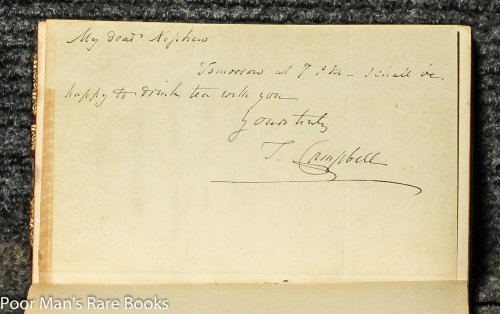 My dear Nephew
Tomorrow at 7 P.M - I shall be
happy to drink tea with you
Yours truly
T. Campbell
Poor Man's Rare Books